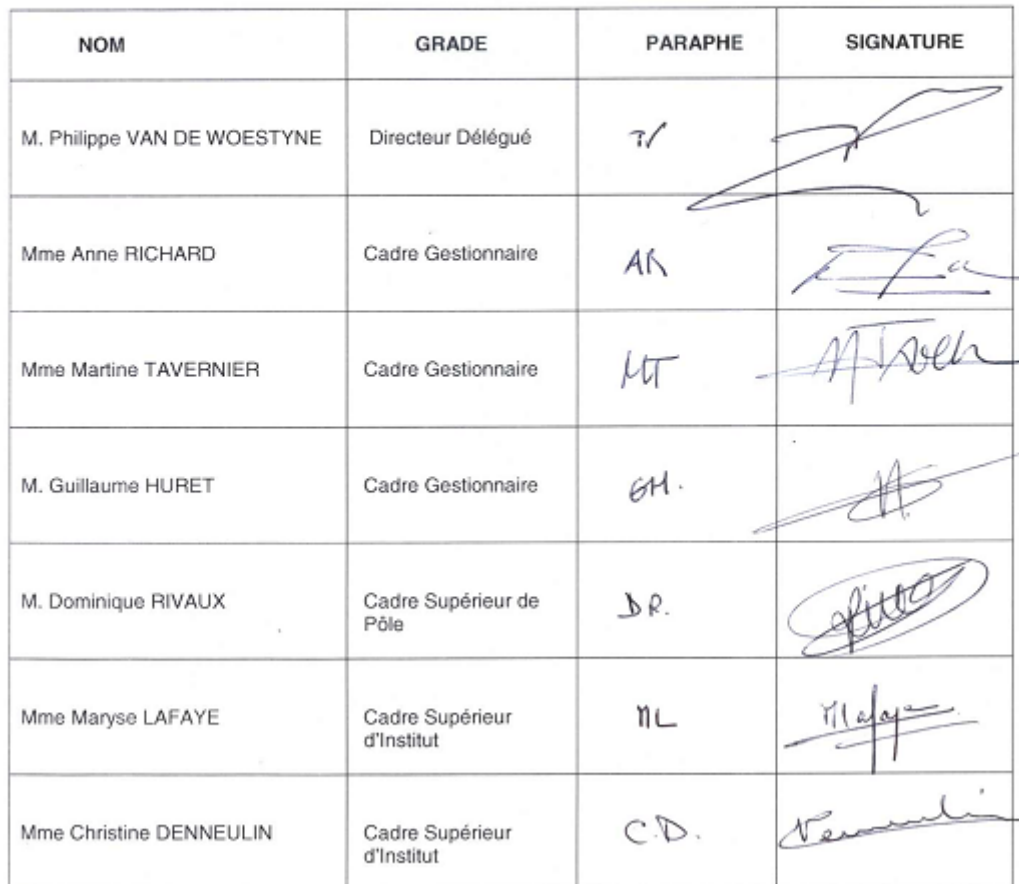 NOM GRADE PARAPHE SIGNATURE
M. Philippe VAN DE WOESTYNE Directeur Délégué
Mme Anne RICHARD Cadre Gestionnaire AR
Mme Martine TAVERNIER Cadre Gestionnaire MT
M. Guillaume HURET Cadre Gestionnaire GH.
M. Dominique RIVAUX Cadre Supérieur de D.R.
Pôle
Mme Maryse LAFAYE Cadre Supérieur ML MLafaye
d'Institut
Mme Christine DENNEULIN Cadre Supérieur C.D. Denneulin
d'Institut